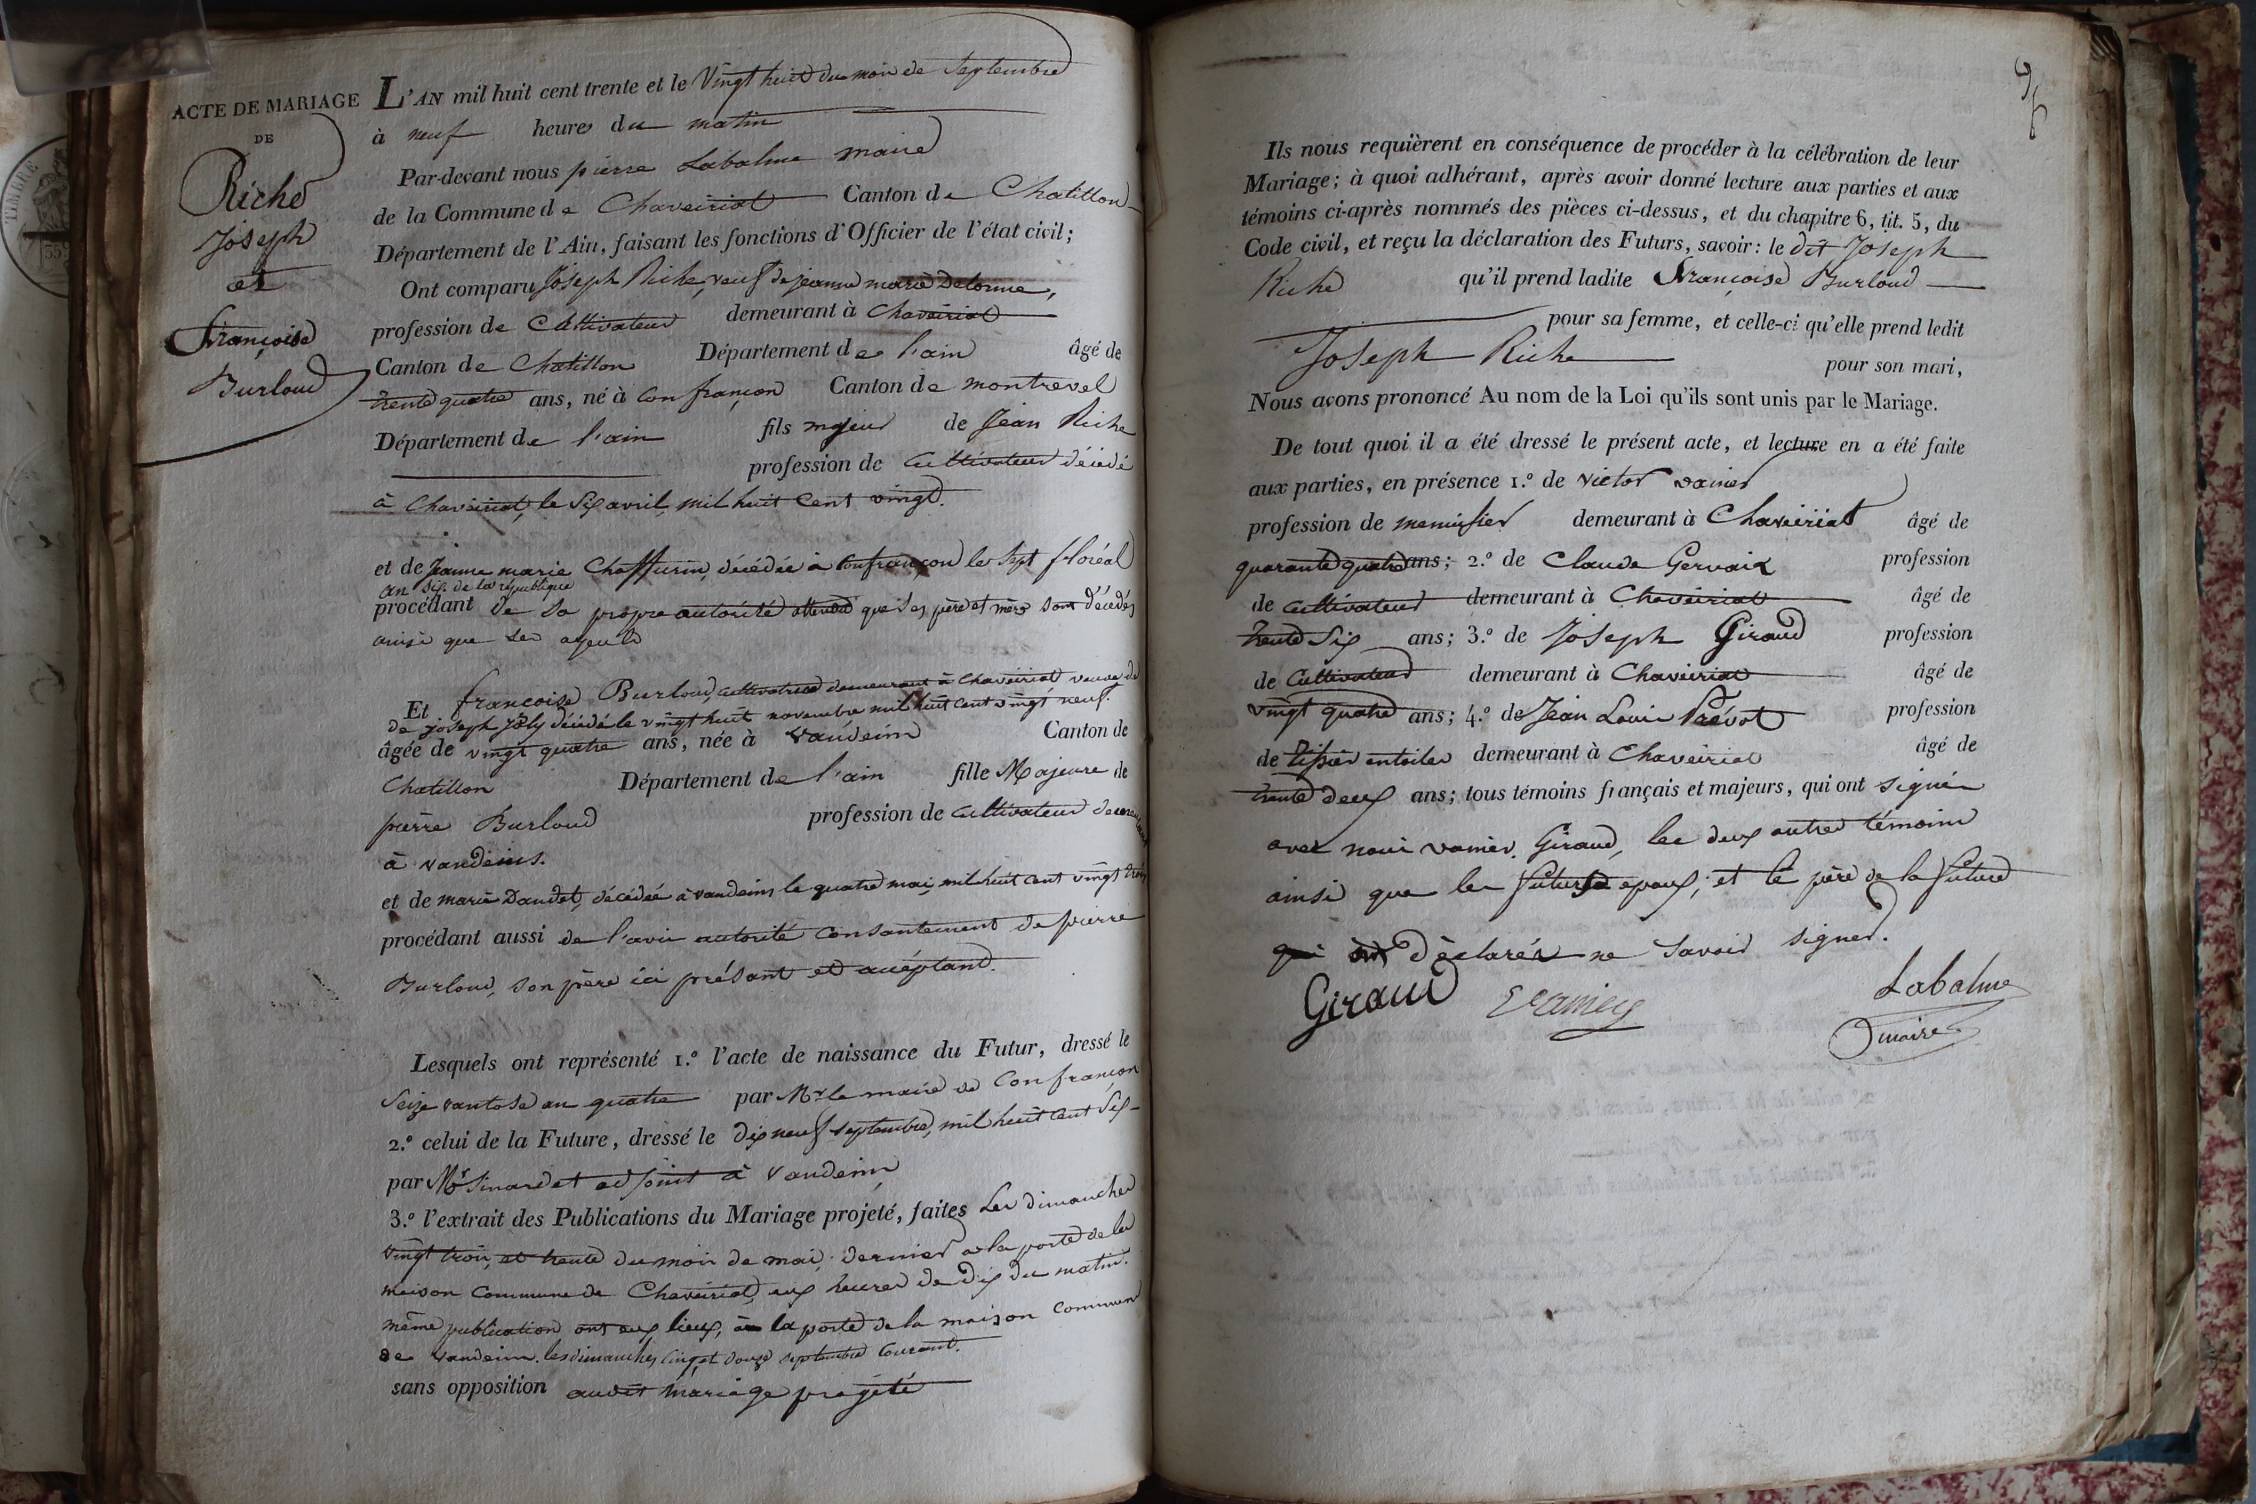 ACTE DE MARIAGE
DE
Riche
Joseph
et
Françoise
Burloud
TIMBRE
L'AN mil huit cent trente et le Vingt huit du mois de Septembre
à neuf heures du matin
Par-devant nous pierre Labalme maire
de la Commune de Chaveiriat Canton de Chatillon
Département de l'Ain, faisant les fonctions d'Officier de l'état civil;
Ont comparu Joseph Riche, veuf de jeanne marie Delorme,
profession de Cultivateur demeurant à Chaveiriat
Canton de Chatillon Département de l'ain âgé de
trente quatre ans, né à Confrançon Canton de montrevel
Département de l'ain fils majeur de Jean Riche
profession de Cultivateur décédé
à Chaveiriat, le Six avril, mil huit Cent vingt.
et de Jeanne marie Chaffurin, décédée à Confrançon le Sept floréal
an Six de la république
procédant de sa propre autorité attendu que ses père et mère sont décédés
ainsi que ses ayeuls
Et françoise Burloud, cultivatrice demeurant à Chaveiriat veuve de
de joseph Joly décédé le vingt huit novembre mil huit cent vingt neuf.
âgée de vingt quatre ans, née à vandeins Canton de
Chatillon Département de l'ain fille Majeure de
pierre Burloud profession de Cultivateur
à vandeins.
et de marie Daudet, décédée à vandeins le quatre mai, mil huit cent vingt trois
procédant aussi de l'avis autorité consantement de pierre
Burloud, son père ici présant et acceptant.
Lesquels ont représenté 1.º l'acte de naissance du Futur, dressé le
Seize vantose an quatre par Mr le maire de Confrançon
2.º celui de la Future, dressé le dix neuf septembre, mil huit cent Six
par Mr Sinardet adjoint à vandeins
3.º l'extrait des Publications du Mariage projeté, faites Les dimanches
vingt trois, et trente du mois de mai, dernier à la porte de la
maison Commune de Chaveiriat, aux heures de dix du matin.
même publication ont eux lieux, à la porte de la maison Commune
de vandeins. les dimanches Cinq et douze septembre Courant.
sans opposition audit mariage projété
96
Ils nous requièrent en conséquence de procéder à la célébration de leur
Mariage; à quoi adhérant, après avoir donné lecture aux parties et aux
témoins ci-après nommés des pièces ci-dessus, et du chapitre 6, tit. 5, du
Code civil, et reçu la déclaration des Futurs, savoir: le dit Joseph
Riche qu'il prend ladite Françoise Burloud
pour sa femme, et celle-ci qu'elle prend ledit
Joseph Riche pour son mari,
Nous avons prononcé Au nom de la Loi qu'ils sont unis par le Mariage.
De tout quoi il a été dressé le présent acte, et lecture en a été faite
aux parties, en présence 1.º de victor vamier
profession de menuisier demeurant à Chaveiriat âgé de
quarante quatre ans; 2.º de Claude Gervaix profession
de Cultivateur demeurant à Chaveiriat âgé de
trente Six ans; 3.º de Joseph Giraud profession
de Cultivateur demeurant à Chaveiriat âgé de
vingt quatre ans; 4.º de Jean Louis Prévot profession
de tissier en toiles demeurant à Chaveiriat âgé de
trente deux ans; tous témoins français et majeurs, qui ont signés
avec nous vamier, Giraud, les deux autres témoins
ainsi que les futurs epoux, et le père de la future
qui ont déclarés ne savoir signer.
Giraud Vamier Labalme
maire